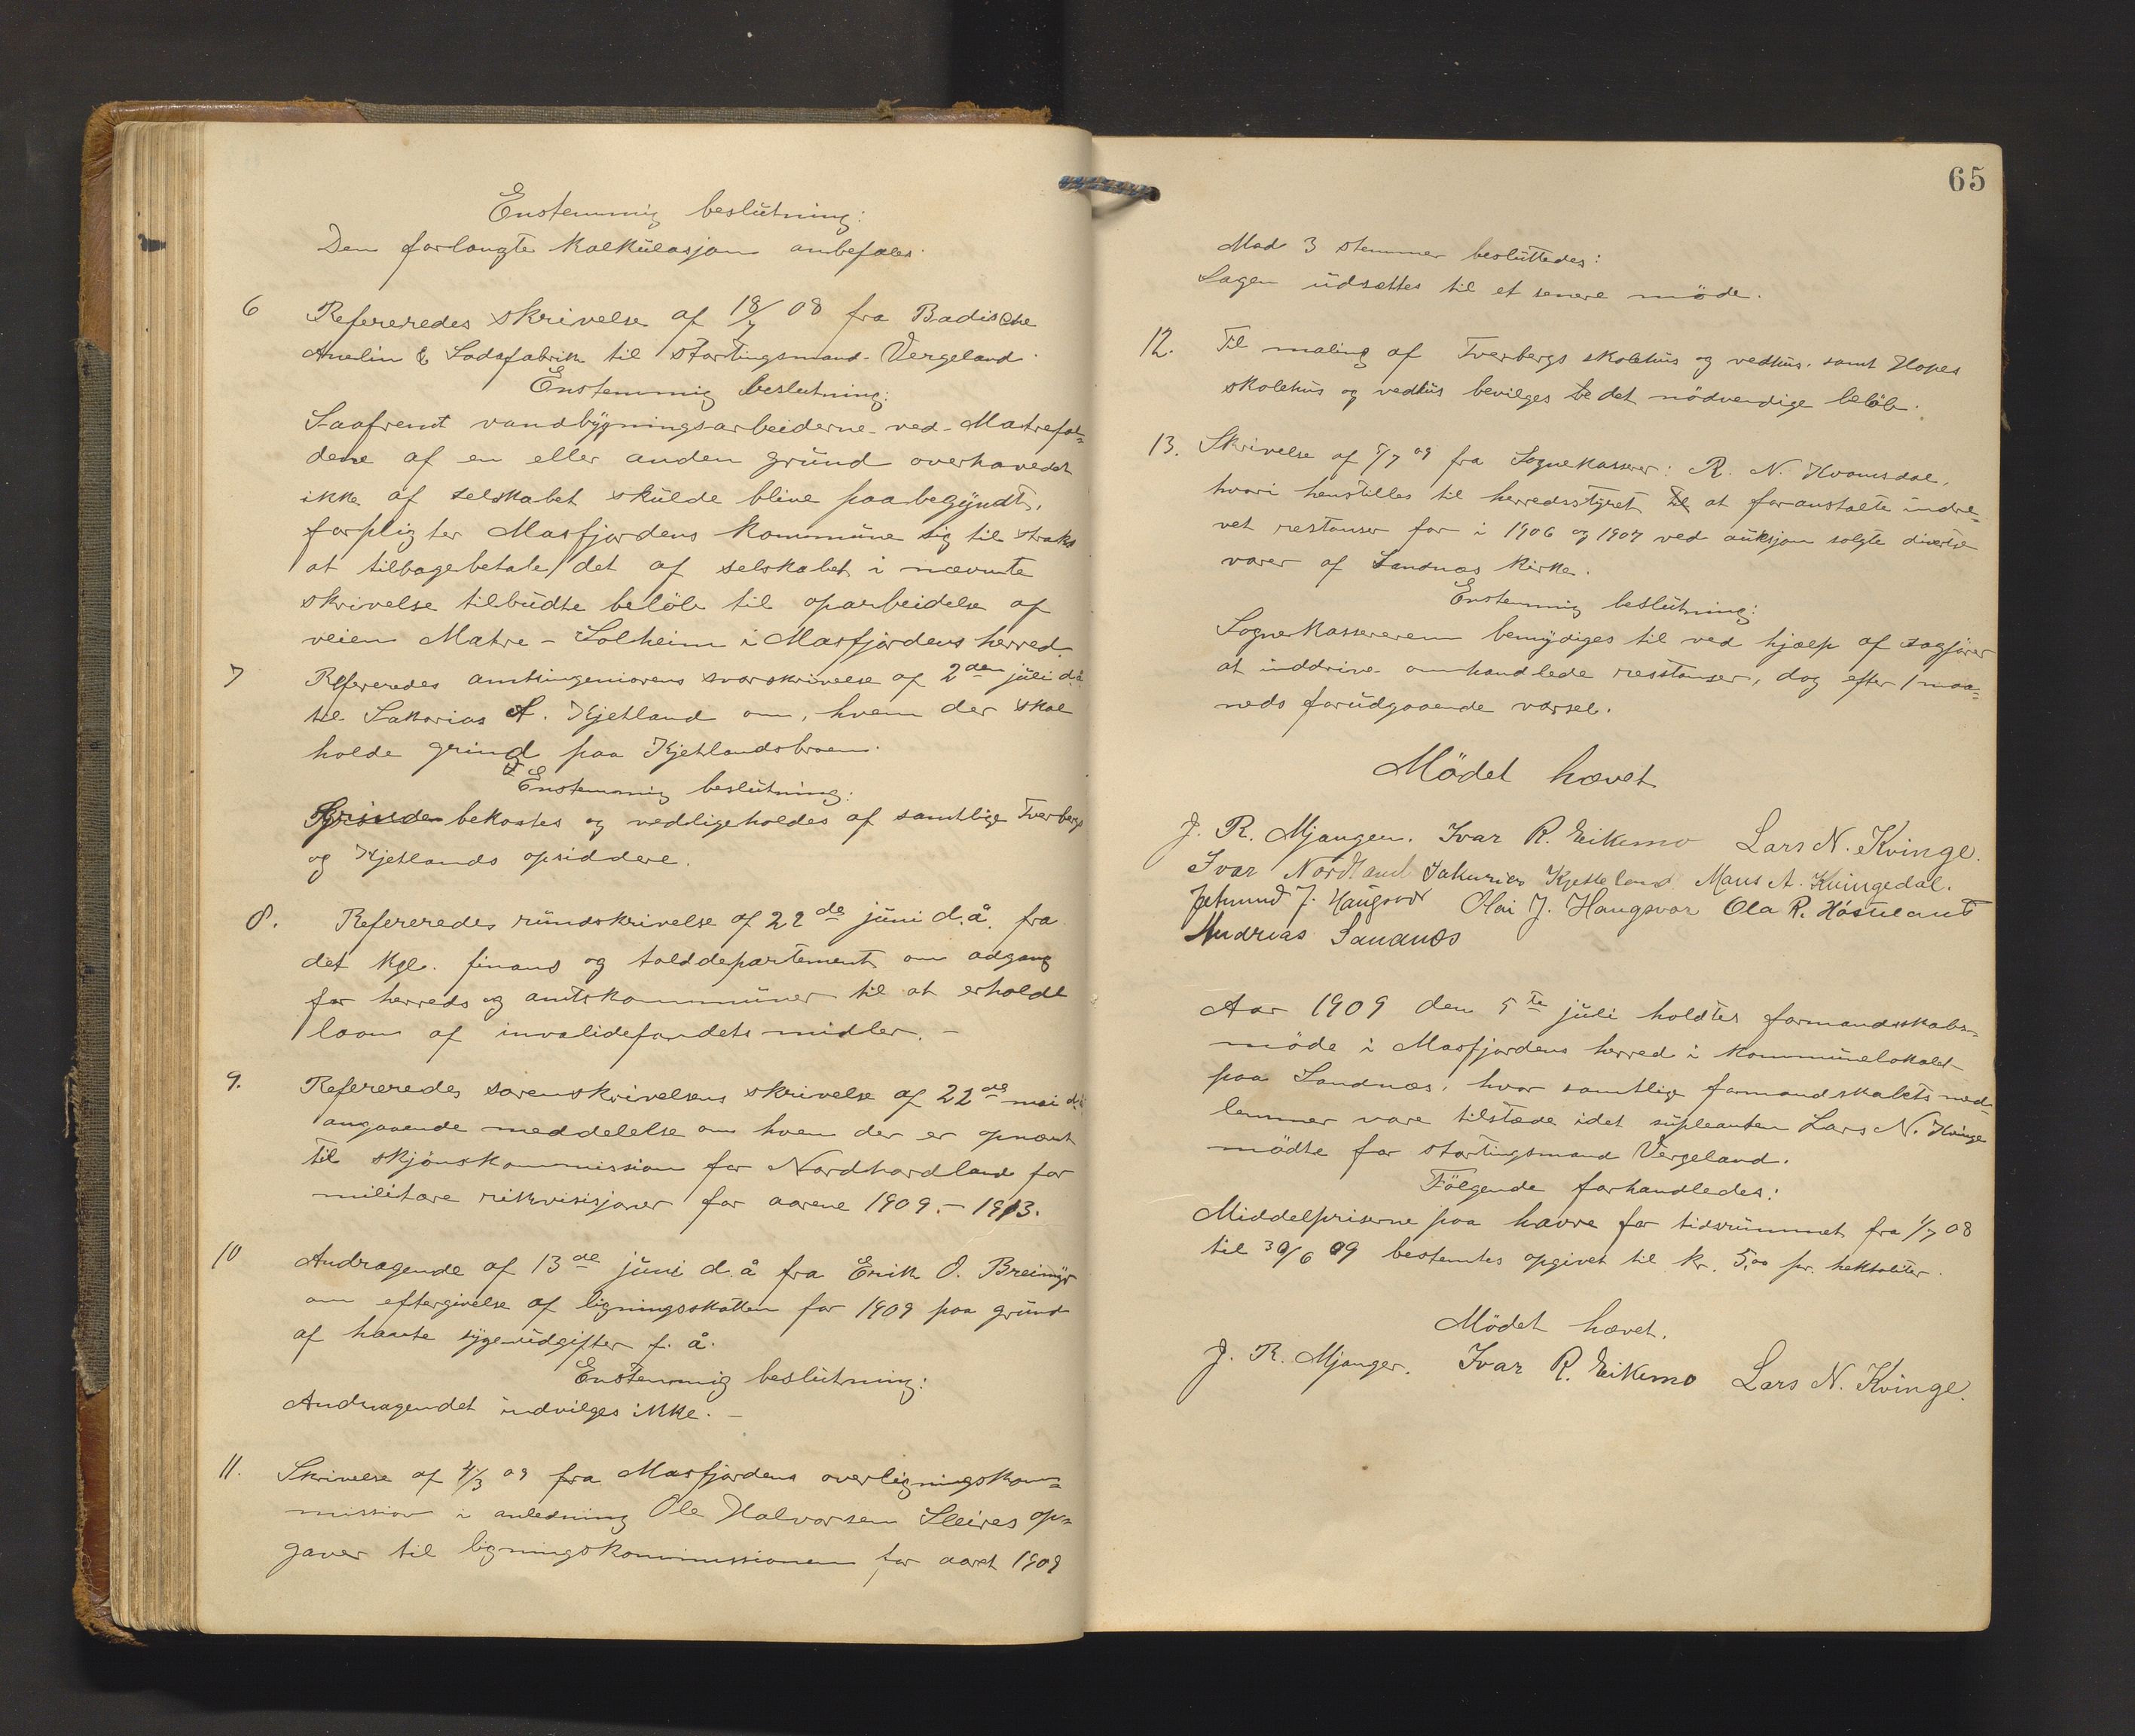 Enstemmig beslutning:
Den forlangte kalkulasjon anbefales.
6 Refereredes skrivelse af 18/7 08 fra Badische
Anelin & Sodafabrik til stortingsmand Vergeland.
Enstemmig beslutning:
Saafremt vandbygningsarbeiderne ved Matrefal-
dene af en eller anden grund overhovedet
ikke af selskabet skulde blive paabegyndt,
forpligter Masfjordens kommune sig til straks
at tilbagebetale det af selskabet i nævnte
skrivelse tilbudte beløb til oparbeidelse af
veien Matre - Solheim i Masfjordens herred.
7 Refereredes amtsingeniørens svarskrivelse af 2den juli d.å.
til Sakarias A. Kjetland om, hvem der skal
holde grind paa Kjetlandsbroen.
Enstemmig beslutning:
Grinden bekostes og vedligeholdes af samtlige Tverbergs
og Kjetlands opsiddere.
8. Refereredes rundskrivelse af 22de juni d.å. fra
det kgl. finans og tolddepartement om adgang
for herreds og amtskommuner til at erholde
laan af invalidefondets midler. -
9. Refereredes sorenskrivelsens skrivelse af 22de mai d.å.
angaaende meddelelse om hvem der er opnævnt
til skjønskommission for Nordhordland for
militære rikvisisjoner for aarene 1909. - 1913.
10 Andragende af 13de juni d.å fra Erik O. Breimyr
om eftergivelse af ligningsskatten for 1909 paa grund
af havte sygeudgifter f. å.
Enstemmig beslutning:
Andragendet indvilges ikke. -
11. Skrivelse af 4/3 09 fra Masfjordens overligningskom-
mission i anledning Ole Halvorsen Sleires op-
gaver til ligningskommissionen for aaret 1909
65
Med 3 stemmer besluttedes:
Sagen udsættes til et senere møde.
12. Til maling af Tverbergs skolehus og vedhus, samt Hopes
skolehus og vedhus bevilges det nødvendige beløb.
13. Skrivelse af 5/7 09 fra Sognekasserer: R. N. Kvamsdal,
hvori henstilles til herredsstyret at foranstalte inddre-
vet restanser for i 1906 og 1907 ved auksjon solgte diverse
varer af Sandnæs kirke.
Enstemmig beslutning:
Sognekassereren bemydiges til ved hjælp af sagfører
at inddrive omhandlede resstanser, dog efter 1 maa-
neds forudgaaende varsel.
Mödet hævet
J. R. Mjanger. Ivar R. Eikemo Lars N. Kvinge.
Ivar Nordland Sakarias Kjetteland Mans A. Kvingedal.
Jetmund J. Haugsvær Olai J. Haugsvær Ola R. Høsteland
Andreas Sandnes
Aar 1909 den 5te juli holdtes formandsskabs-
møde i Masfjordens herred i kommunelokalet
paa Sandnæs, hvor samtlige formandskabets med-
lemmer vare tilstede idet supleanten Lars N. Kvinge
mödte for stortingsmand Vergeland.
Følgende forhandledes:
Middelpriserne paa havre for tidsrummet fra 1/7 08
til 30/6 09 bestemtes opgivet til kr. 5,00 pr. hektoliter.
Mödet hævet.
J. R. Mjanger. Ivar R. Eikemo Lars N. Kvinge.